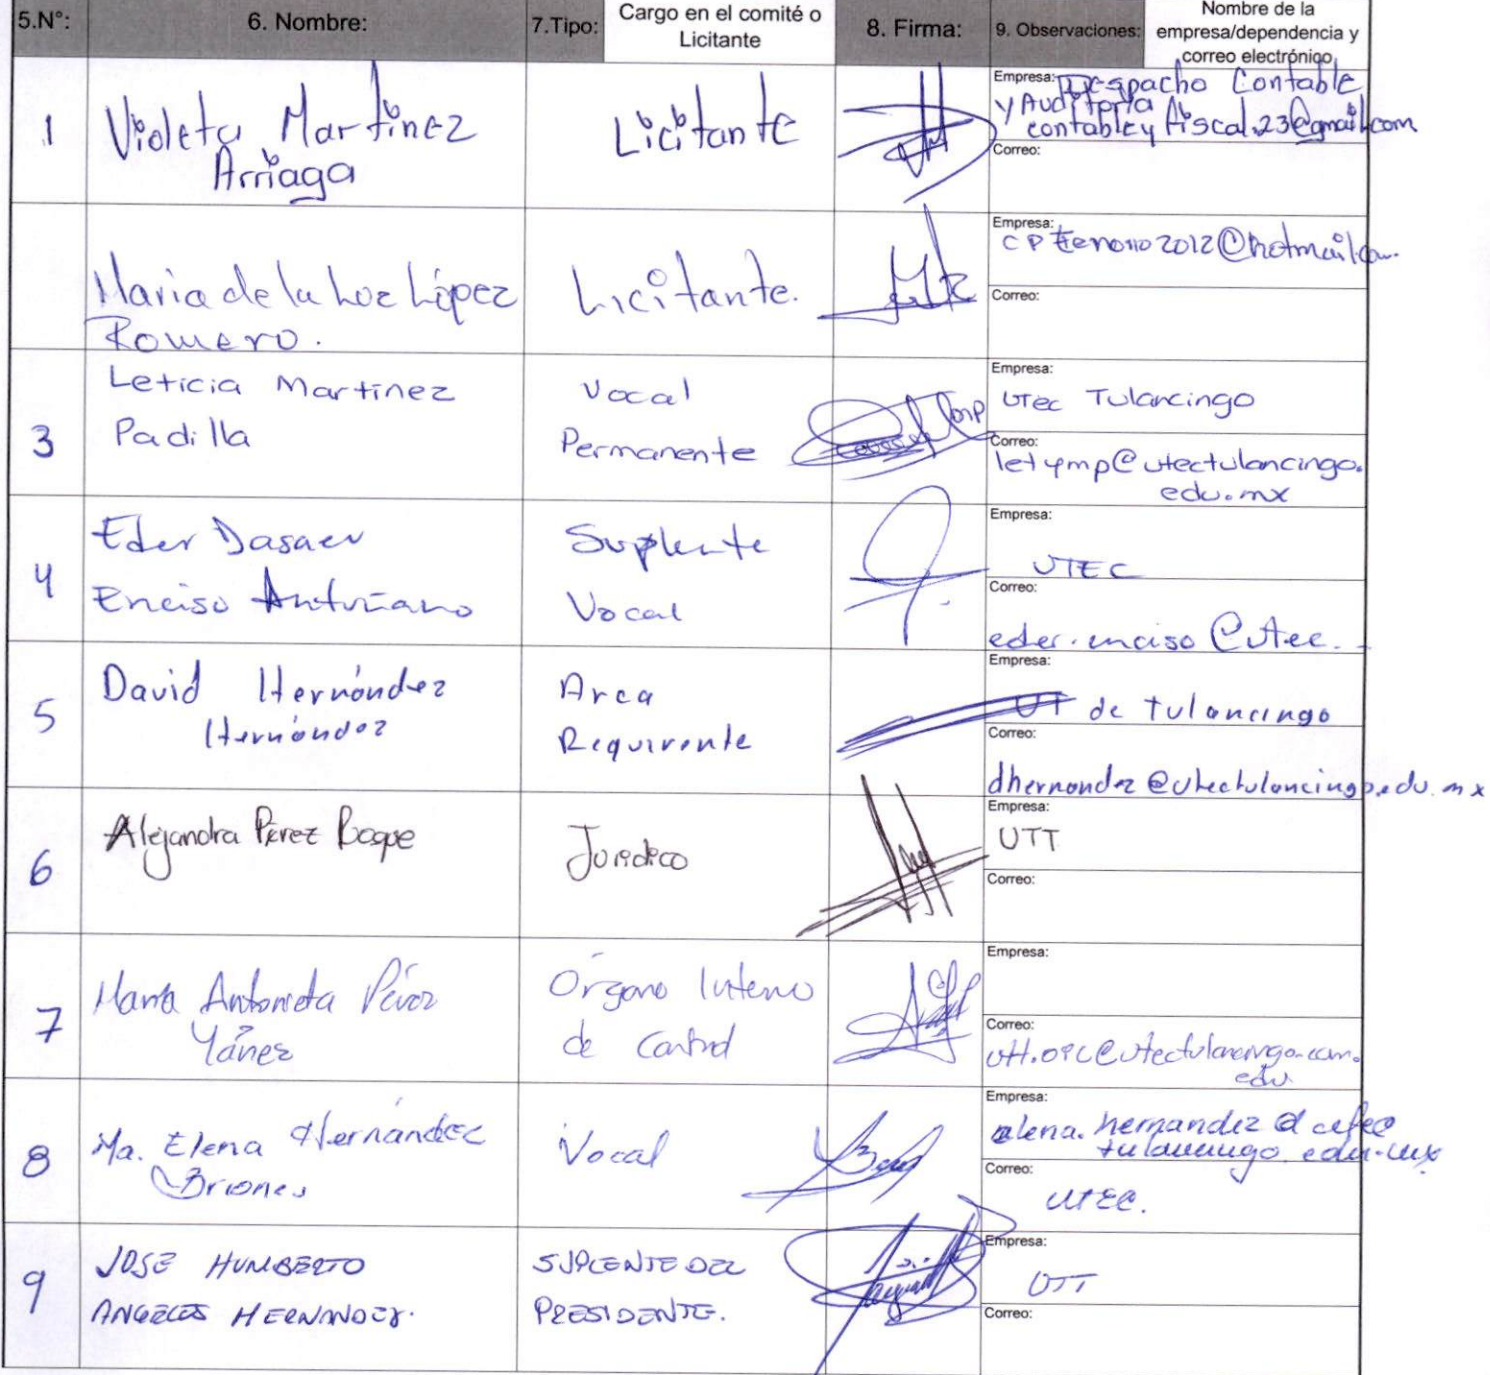 5.N°: 6. Nombre: 7.Tipo: Cargo en el comité o Licitante 8. Firma: 9. Observaciones: Nombre de la empresa/dependencia y correo electrónico
1 Violeta Martínez Licitante
Arriaga
Empresa: Despacho Contable
y Auditoria
contableyfiscal.23@gmail.com
Correo:
Maria de la Luz López Licitante.
Romero.
Empresa:
2012@hotmail.com
Correo:
3 Leticia Martínez Vocal
Padilla Permanente
Empresa:
UTec Tulancingo
Correo:
letymp@utectulancingo.
edu.mx
4 Eder Dasaev Suplente
Enciso Vocal
Empresa:
UTEC
Correo:
eder.enciso@utec.
5 David Hernández Area
Hernández Requirente
Empresa:
UT de tulancingo
Correo:
dhernandez@utectulancingo.edu.mx
6 Alejandra Pérez Roque Juridico
Empresa:
UTT
Correo:
7 María Antonieta Pérez Órgano Interno
Yáñez de Control
Empresa:
Correo:
edu
8 Ma. Elena Hernández Vocal
Briones
Empresa:
elena.hernandez@utec
tulancingo.edu.mx
Correo:
UTEC.
9 JOSÉ HUMBERTO SUPLENTE DEL
ANGELES HERNANDEZ. PRESIDENTE.
Empresa:
UTT
Correo: